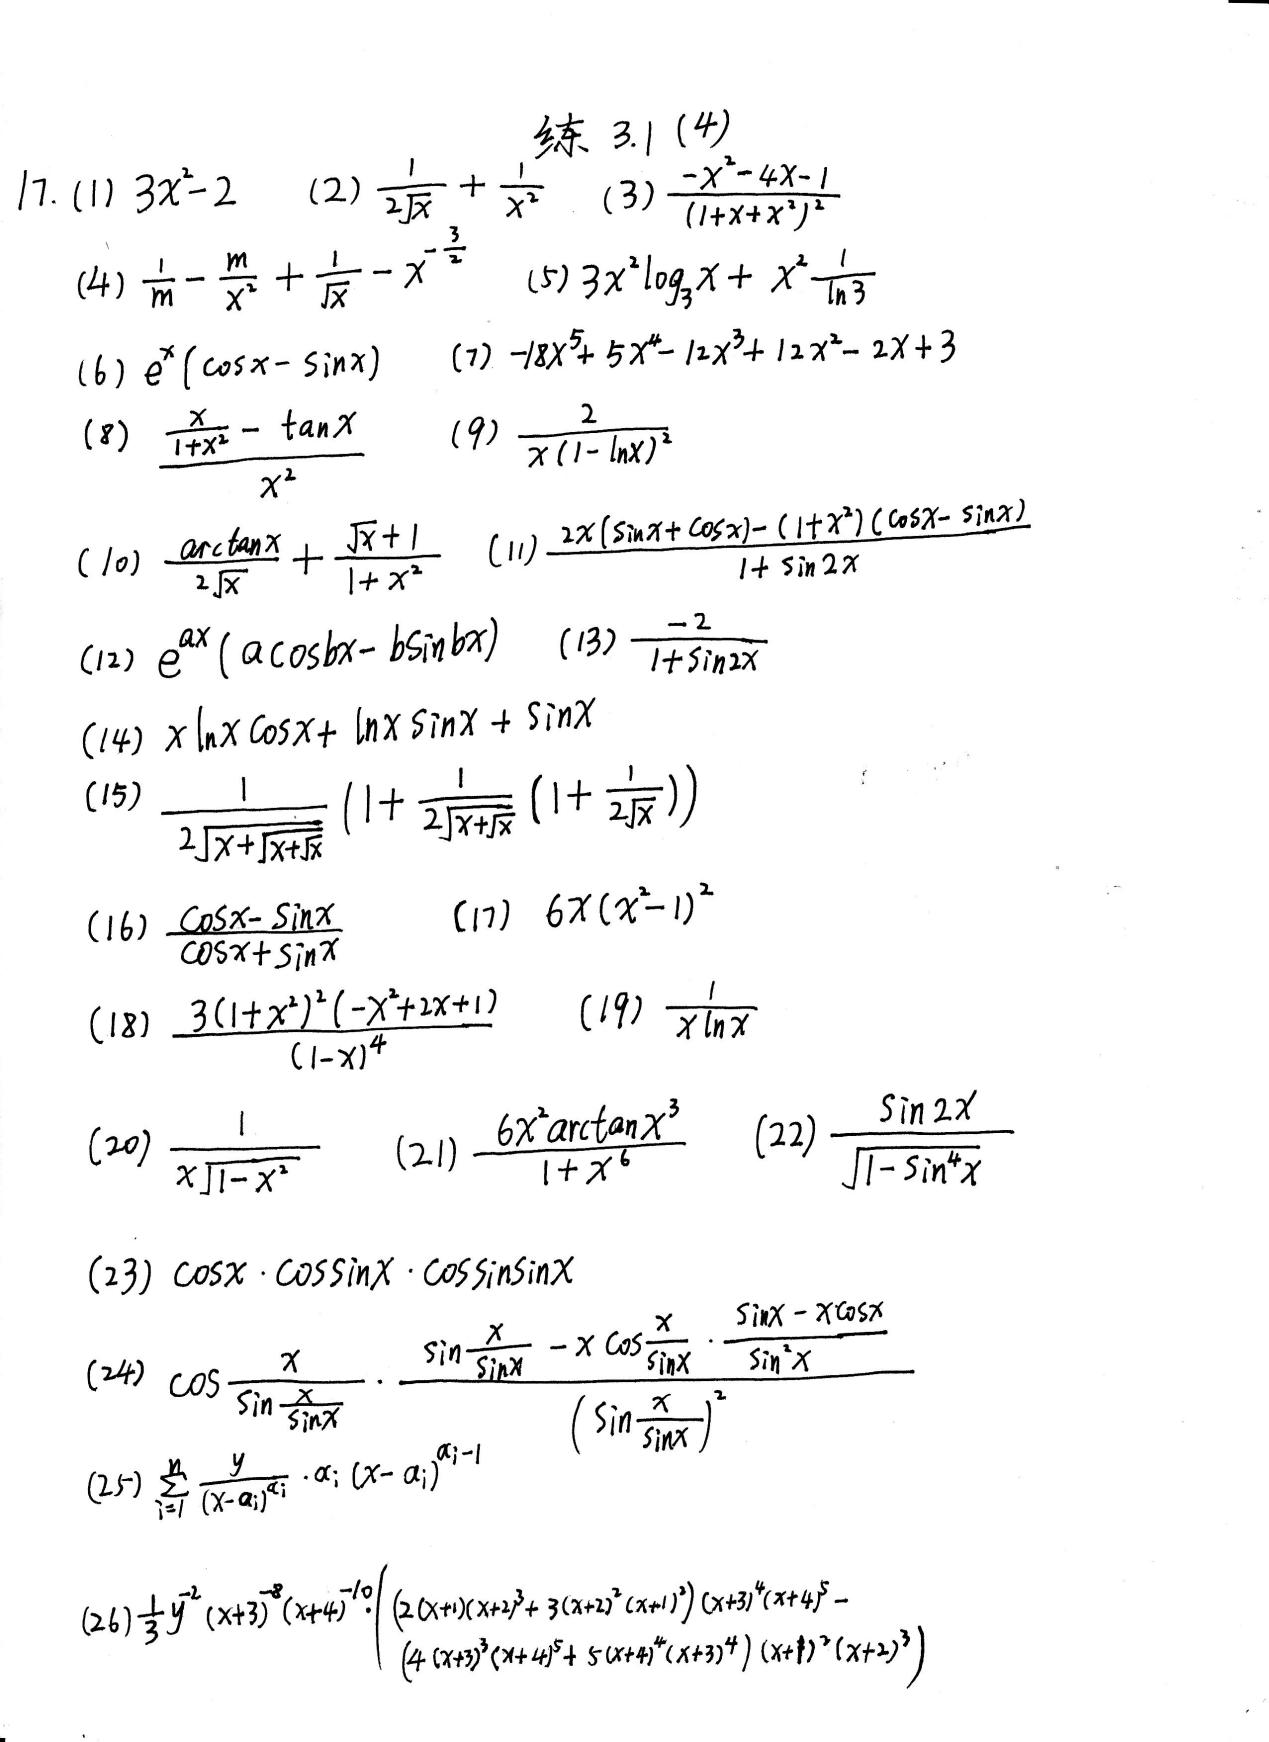 练 3.1 (4)
17. (1) 3x²-2 (2) \frac{1}{2\sqrt{x}} + \frac{1}{x²} (3) \frac{-x²-4x-1}{(1+x+x²)²}
(4) \frac{1}{m} - \frac{m}{x²} + \frac{1}{\sqrt{x}} - x^{-\frac{3}{2}} (5) 3x²log₃x + x²\frac{1}{ln3}
(6) e^x(cosx-sinx) (7) -18x⁵+5x⁴-12x³+12x²-2x+3
(8) \frac{\frac{x}{1+x²} - tanx}{x²} (9) \frac{2}{x(1-lnx)²}
(10) \frac{arctanx}{2\sqrt{x}} + \frac{\sqrt{x}+1}{1+x²} (11) \frac{2x(sinx+cosx)-(1+x²)(cosx-sinx)}{1+sin2x}
(12) e^{ax}(acosbx-bsinbx) (13) \frac{-2}{1+sin2x}
(14) xlnxcosx+lnxsinx+sinx
(15) \frac{1}{2\sqrt{x+\sqrt{x+\sqrt{x}}}}(1+\frac{1}{2\sqrt{x+\sqrt{x}}}(1+\frac{1}{2\sqrt{x}}))
(16) \frac{cosx-sinx}{cosx+sinx} (17) 6x(x²-1)²
(18) \frac{3(1+x²)²(-x²+2x+1)}{(1-x)⁴} (19) \frac{1}{xlnx}
(20) \frac{1}{x\sqrt{1-x²}} (21) \frac{6x²arctanx³}{1+x⁶} (22) \frac{sin2x}{\sqrt{1-sin⁴x}}
(23) cosx·cossinx·cossinsinx
(24) cos\frac{x}{sin\frac{x}{sinx}}·\frac{sin\frac{x}{sinx}-xcos\frac{x}{sinx}·\frac{sinx-xcosx}{sin²x}}{(sin\frac{x}{sinx})²}
(25) \sum_{i=1}^{n}\frac{y}{(x-a_i)^{α_i}}·α_i(x-a_i)^{α_i-1}
(26) \frac{1}{3}y^{-2}(x+3)^{-8}(x+4)^{-10}·((2(x+1)(x+2)³+3(x+2)²(x+1)²)(x+3)⁴(x+4)⁵-
(4(x+3)³(x+4)⁵+5(x+4)⁴(x+3)⁴)(x+1)²(x+2)³)